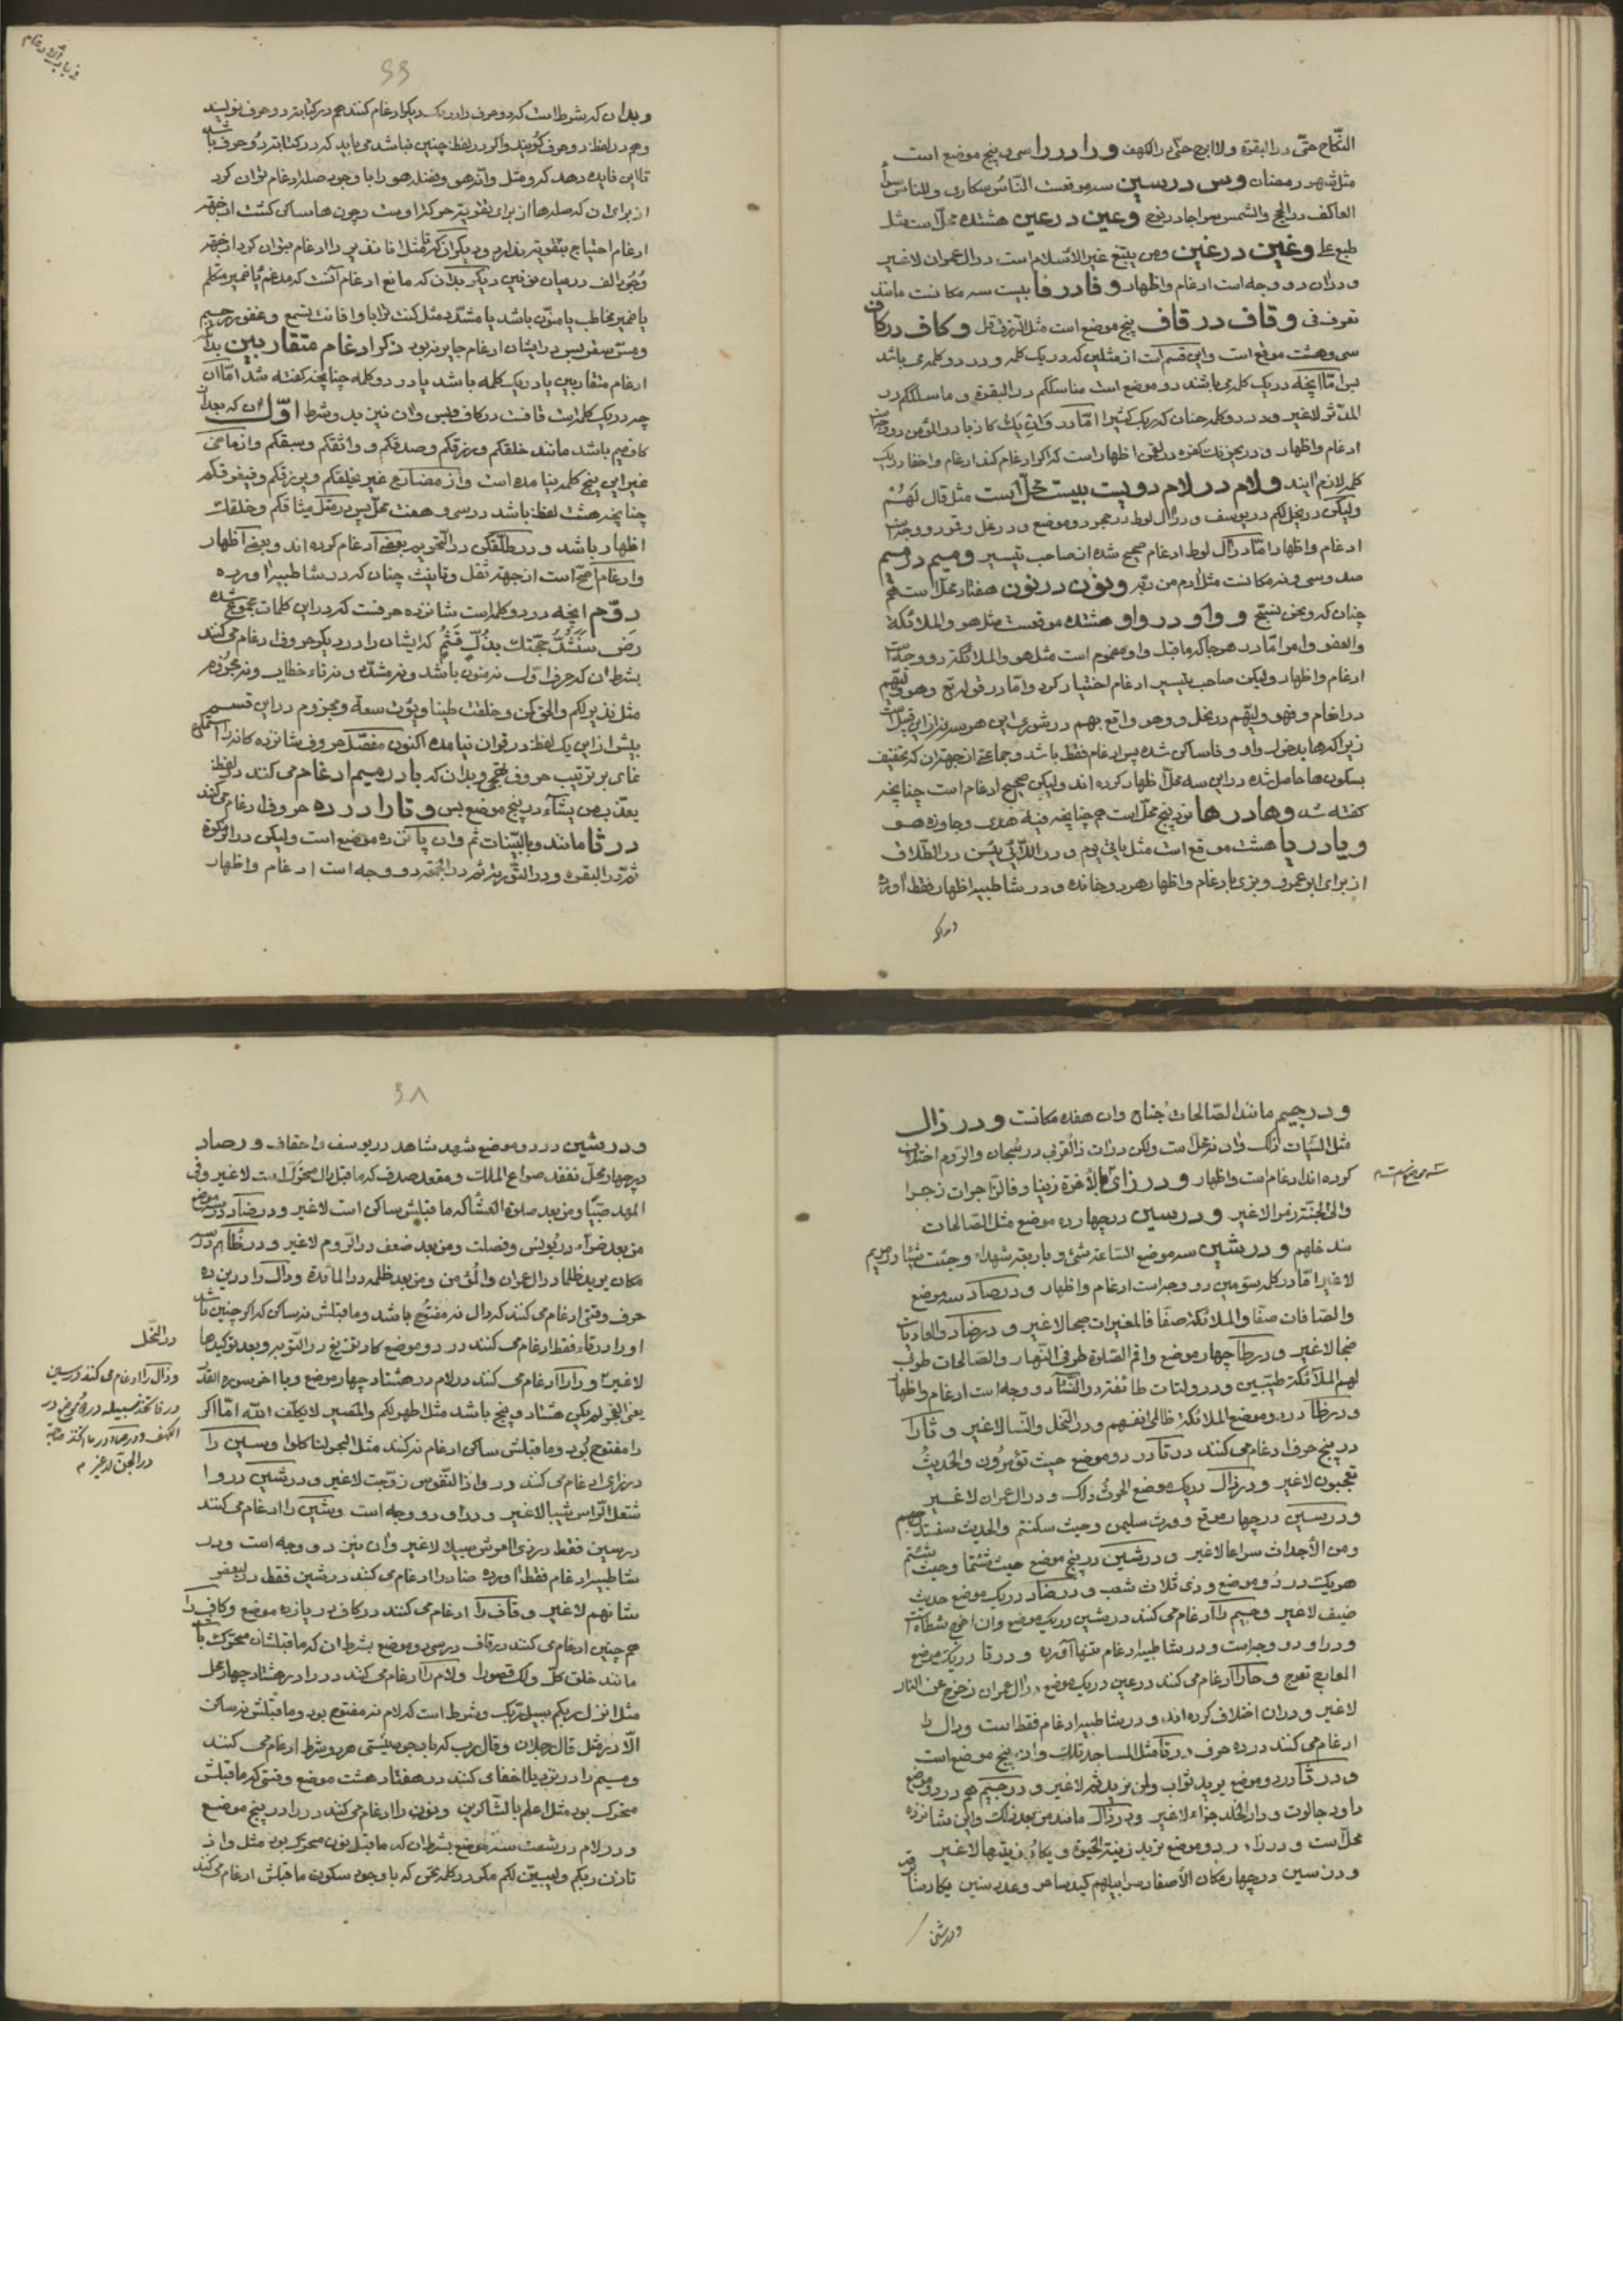 النّكاح حتّى در البقرة ولا ابرح حتّى در الكهف و را در را سی و پنج موضع است
مثل شهر رمضان و س در سین سه موقعست النّاس سكارى وللناس سواءً
العاكف در الحج والشمس سراجا در نوح و عین در عین هشتده محلّ است مثل
طبع على و غین در غین ومن يبتغ غير الاسلام است در ال عمران لاغیر
و در ان دو وجه است ادغام و اظهار و فا در فا بیست سه مكانست مانند
تعرف فى و قاف در قاف پنج موضع است مثل الرّزق قل و كاف در كاف
سی و هشت موقع است و این قسم است از مثلین که در یک کلمه و در دو کلمه می باشد
پس امّا آنچه در یک کلمه می باشند دو موضع است مناسككم در البقرة و ما سلككم در
المدّثر لاغیر و در دو كلمه چنان كه ربك كثيرا امّا در وان يك كاذبا در المؤمن دو وجه است
ادغام و اظهار و در يحزنك كفره در لقمن اظهار است كه اگر ادغام كنند ادغام و اخفا در یک
كلمه لازم ایند و لام در لام دویست بیست محلّ است مثل قال لهم
ولیكن در يخل لكم در یوسف و در ال لوط در حجر دو موضع و در نمل و قمر دو وجه است
ادغام و اظهار امّا در ال لوط ادغام صحیح شده از صاحب تیسیر و میم در میم
صد و سی و نه مكانست مثل ادم من ربّه و نون در نون هفتاد محلّ است هم
چنان كه ونحن نسبّح و واو در واو هشتده موقعست مثل هو والملائكة
والعفو وامر امّا در هر جا كه ماقبل واو مضموم است مثل هو والملائكة دو وجه است
ادغام و اظهار ولیكن صاحب تیسیر ادغام اختیار كرد و امّا در قوله تع وهو وليّهم
در انعام و فهو وليّهم در نحل و وهو واقع بهم در شورى این هر سه نیز از این قبیل است
زیرا كه ها بدخول واو و فا ساكن شده پس ادغام فقط باشد و جماعتى از جهت ان كه تخفیف
بسكون ها حاصل شده در این سه محلّ اظهار كرده اند ولیكن صحیح ادغام است چنانچه
گفته شد و ها در ها نود پنج محلّ است هم چنانچه فيه هدى و جاوزه هو
و یا در یا هشت موقع است مثل ياتى يوم و در اللّائى يئسن در الطّلاق
از برای ابو عمرو و بزی با ادغام و اظهار هر دو خوانده و در شاطبیه اظهار فقط آورده
و بدان كه
در باب الادغام
و بدان كه شرط است كه دو حرف را در یک دیگر ادغام كنند هم در كتابت دو حرف نویسند
و هم در لفظ دو حرف گویند و اگر در لفظ چنین نباشد می باید كه در كتابت دو حرف باشد
تا این فایده دهد كه و مثل وانّه هو و بفضله هو را با وجود صله ادغام توان كرد
از برای ان كه صله ها از برای تقویة حركة اوست و چون ها ساكن گشت از جهة
ادغام احتیاج بتقویة ندارد و دیگر ان كه تا مثل انا نذير را ادغام نتوان كرد از جهة
وجود الف در میان دو نون دیگر بدان كه مانع ادغام آنست كه مدغم یا ضمیر متكلم
یا ضمیر مخاطب یا منوّن باشد یا مشدّد مثل كنت ترابا و افانت تسمع و غفور رحيم
و مسّ سقر پس در ایشان ادغام جایز نبود ذكر ادغام متقاربین بدان
ادغام متقاربین یا در یک كلمه باشد یا در دو كلمه چنانچه گفته شد امّا ان
چه در یک كلمه است قافست در كاف و بس و ان نیز بدو شرط اوّل ان كه بعد از
كاف میم باشد مانند خلقكم و رزقكم و صدقكم و واثقكم و سبقكم و از ماضی
غیر این پنج كلمه نیامده است و از مضارع غیر يخلقكم و يرزقكم و فيغرقكم
چنانچه هشت لفظ باشد در سی و هفت محلّ پس در مثل ميثاقكم و خلقك
اظهار باشد و در طلّقكن در التّحریم بعضی ادغام كرده اند و بعضی اظهار
و ادغام اصحّ است از جهة ثقل و تانیث چنان كه در شاطبیه اورده
دوّم انچه در دو كلمه است شانزده حرفست كه در این كلمات مجموع شده
رض سنشدّ حجّتك بذلّ قثم كه ایشان را در دیگر حروف ادغام می كنند
بشرط ان كه حرف اوّل نه منون باشد و نه مشدّد و نه تاء خطاب و نه مجزوم
مثل نذير لكم و الحق كمن و خلقت طينا و يؤت سعة و مجزوم در این قسم
بیش از این یک لفظ در قران نیامده اكنون مفصّل حروف شانزده گانه را استماع
نمای بر ترتیب حروف تهجّی و بدان كه با در میم ادغام می كنند در لفظ
يعذّب من يشآء در پنج موضع بس و تا را در ده حروف ادغام می كنند
در ثا مانند و بالبيّنات ثم و ان پانزده موضع است ولیكن در الزكوة
ثم در البقره و در التّوریة ثم در الجمعه دو وجه است ادغام و اظهار
و در جیم مانند الصّالحات جناح و ان هفده مكانست و در ذال
مثل السّيّات ذلك و ان نه محلّ است ولكن در ات ذا القربى در سبحان والرّوم اختلاف
كرده اند ادغام است و اظهار و در زای بالاخرة زينا و فالزّاجرات زجرا
والى الجنّة زمرا لاغیر و در سین در چهارده موضع مثل الصّالحات
سند خلهم و در شین سه موضع السّاعة شئ و باربعة شهداء و جئت شيئا در مریم
لاغیر امّا در كلمه سوّمین دو وجه است ادغام و اظهار و در صاد سه موضع
والصّافات صفّا والملائكة صفّا فالمغيرات صبحا لاغیر و در ضاد والعاديات
ضبحا لاغیر و در طا چهار موضع واقم الصّلوة طرفى النّهار والصّالحات طوبى
لهم الملآئكة طيّبين و در ولتات طائفة در النّسآ دو وجه است ادغام و اظهار
و در ظا در دو موضع الملائكة ظالمى انفسهم در النّحل والنّسا لاغیر و ثا را
در پنج حرف ادغام می كنند در تا در دو موضع حيث تؤمرون والحديث
تعجبون لاغیر و در ذال در یک موضع الحرث ذلك و در ال عمران لاغیر
و در سین در چهار موقع وورث سليمن و حيث سكنتم والحديث سنستدرجهم
ومن الأجداث سراعا لاغیر و در شین در پنج موضع حيث شئتما و حيث شئتم
هر یک در دو موضع و ذى ثلاث شعب و در ضاد در یک موضع حديث
ضيف لاغیر و جیم را ادغام می كنند در شین در یک موضع و ان اخرج شطأه است
و در او دو وجه است و در شاطبیه ادغام تنها آورده و در تا در یک موضع
المعارج تعرج و حا را ادغام می كنند در عین در یک موضع در ال عمران زحزح عن النار
لاغیر و در ان اختلاف كرده اند و در شاطبیه ادغام فقط است و دال را
ادغام می كنند در ده حرف در تا مثل المساجد تلك و ان پنج موضع است
و در ثا در دو موضع يريد ثواب و لمن نريد ثم لاغیر و در جیم هم در دو موضع
داود جالوت و دار الخلد جزاء لاغیر و در ذال مانند من بعد ذلك و این شانزده
محلّ است و در زاء در دو موضع تريد زينة الحيوة و يكاد زيتها لاغیر
و در سین در چهار مكان الأصفاد سرابيلهم كيد ساحر و عدد سنين يكاد سنا برقه
و در شین
و در شین در دو موضع شهد شاهد در یوسف و احقاف و در صاد
در چهار محلّ نفقد صواع الملك و مقعد صدق كه ماقبل دال متحرّک است لاغیر و فى
المهد صبيّا ومن بعد صلوة العشآ كه ماقبلش ساكن است لاغیر و در ضاد در سه موضع
من بعد ضرّاء در یونس و فصلت ومن بعد ضعف در الرّوم لاغیر و در ظا در سه
مكان يريد ظلما در ال عمران والمؤمن ومن بعد ظلمه در المائدة و دال را در این ده
حرف وقتی ادغام می كنند كه دال نه مفتوح باشد و ماقبلش نه ساكن كه اگر چنین باشد
او را در تاء فقط ادغام می كنند در دو موضع كاد تزيغ در التّوبه و بعد توكيدها
لاغیر و را را ادغام می كنند در لام در هشتاد چهار موضع و با اخر سوره القدر
یعنی الفجر لم يكن هشتاد و پنج باشد مثل اطهر لكم والمصير لا يكلّف الله امّا اگر
را مفتوح بود و ماقبلش ساكن ادغام نه كنند مثل البحر لتاكلوا و سین را
در زای ادغام می كنند در واذا النّفوس زوّجت لاغیر و در شین در وا
شتعل الرّاس شيبا لاغیر و در او دو وجه است و شین را ادغام می كنند
در سین فقط در ذى العرش سبيلا لاغیر و ان نیز دو وجه است و در
شاطبیه ادغام فقط اورده ضاد را ادغام می كنند در شین فقط در لبعض
شانهم لاغیر و قاف را ادغام می كنند در كاف در یازده موضع و كاف را
هم چنین ادغام می كنند در قاف در سی و دو موضع بشرط ان كه ماقبلشان متحرّک باشد
مانند خلق كلّ و لك قصورا و لام را ادغام می كنند در را در هشتاد چهار محل
مثل انزل ربكم سبيل ربك و شرط است كه لام نه مفتوح بود و ماقبلش نه ساكن
الّا در مثل قال رجلان و قال رب كه با وجود نیستی هر دو شرط ادغام می كنند
و میم را در نزد با اخفا می كنند در هفتاد هشت موضع وقتی كه ماقبلش
متحرک بود مثل اعلم بالشّاكرين و نون را ادغام می كنند در را در پنج موضع
و در لام در شصت سه موضع بشرط ان كه ماقبل نون متحرک بود مثل واذ
تاذن ربكم و ليبيّن لكم مگر در كلمه نحن كه با وجود سكون ماقبلش ادغام می كنند
در النّحل
و ذال را ادغام می كنند در سین
در فاتخذ سبيله در دو موضع در
الكهف و در صاد در ما اتخذ صاحبة
در الجنّ لاغیر م